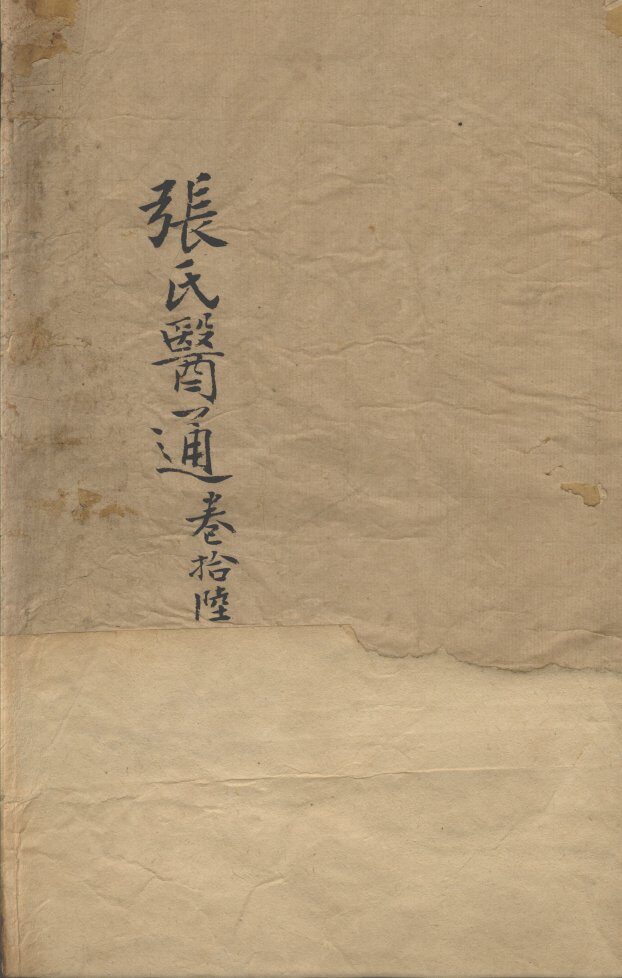 張氏醫通卷拾陸